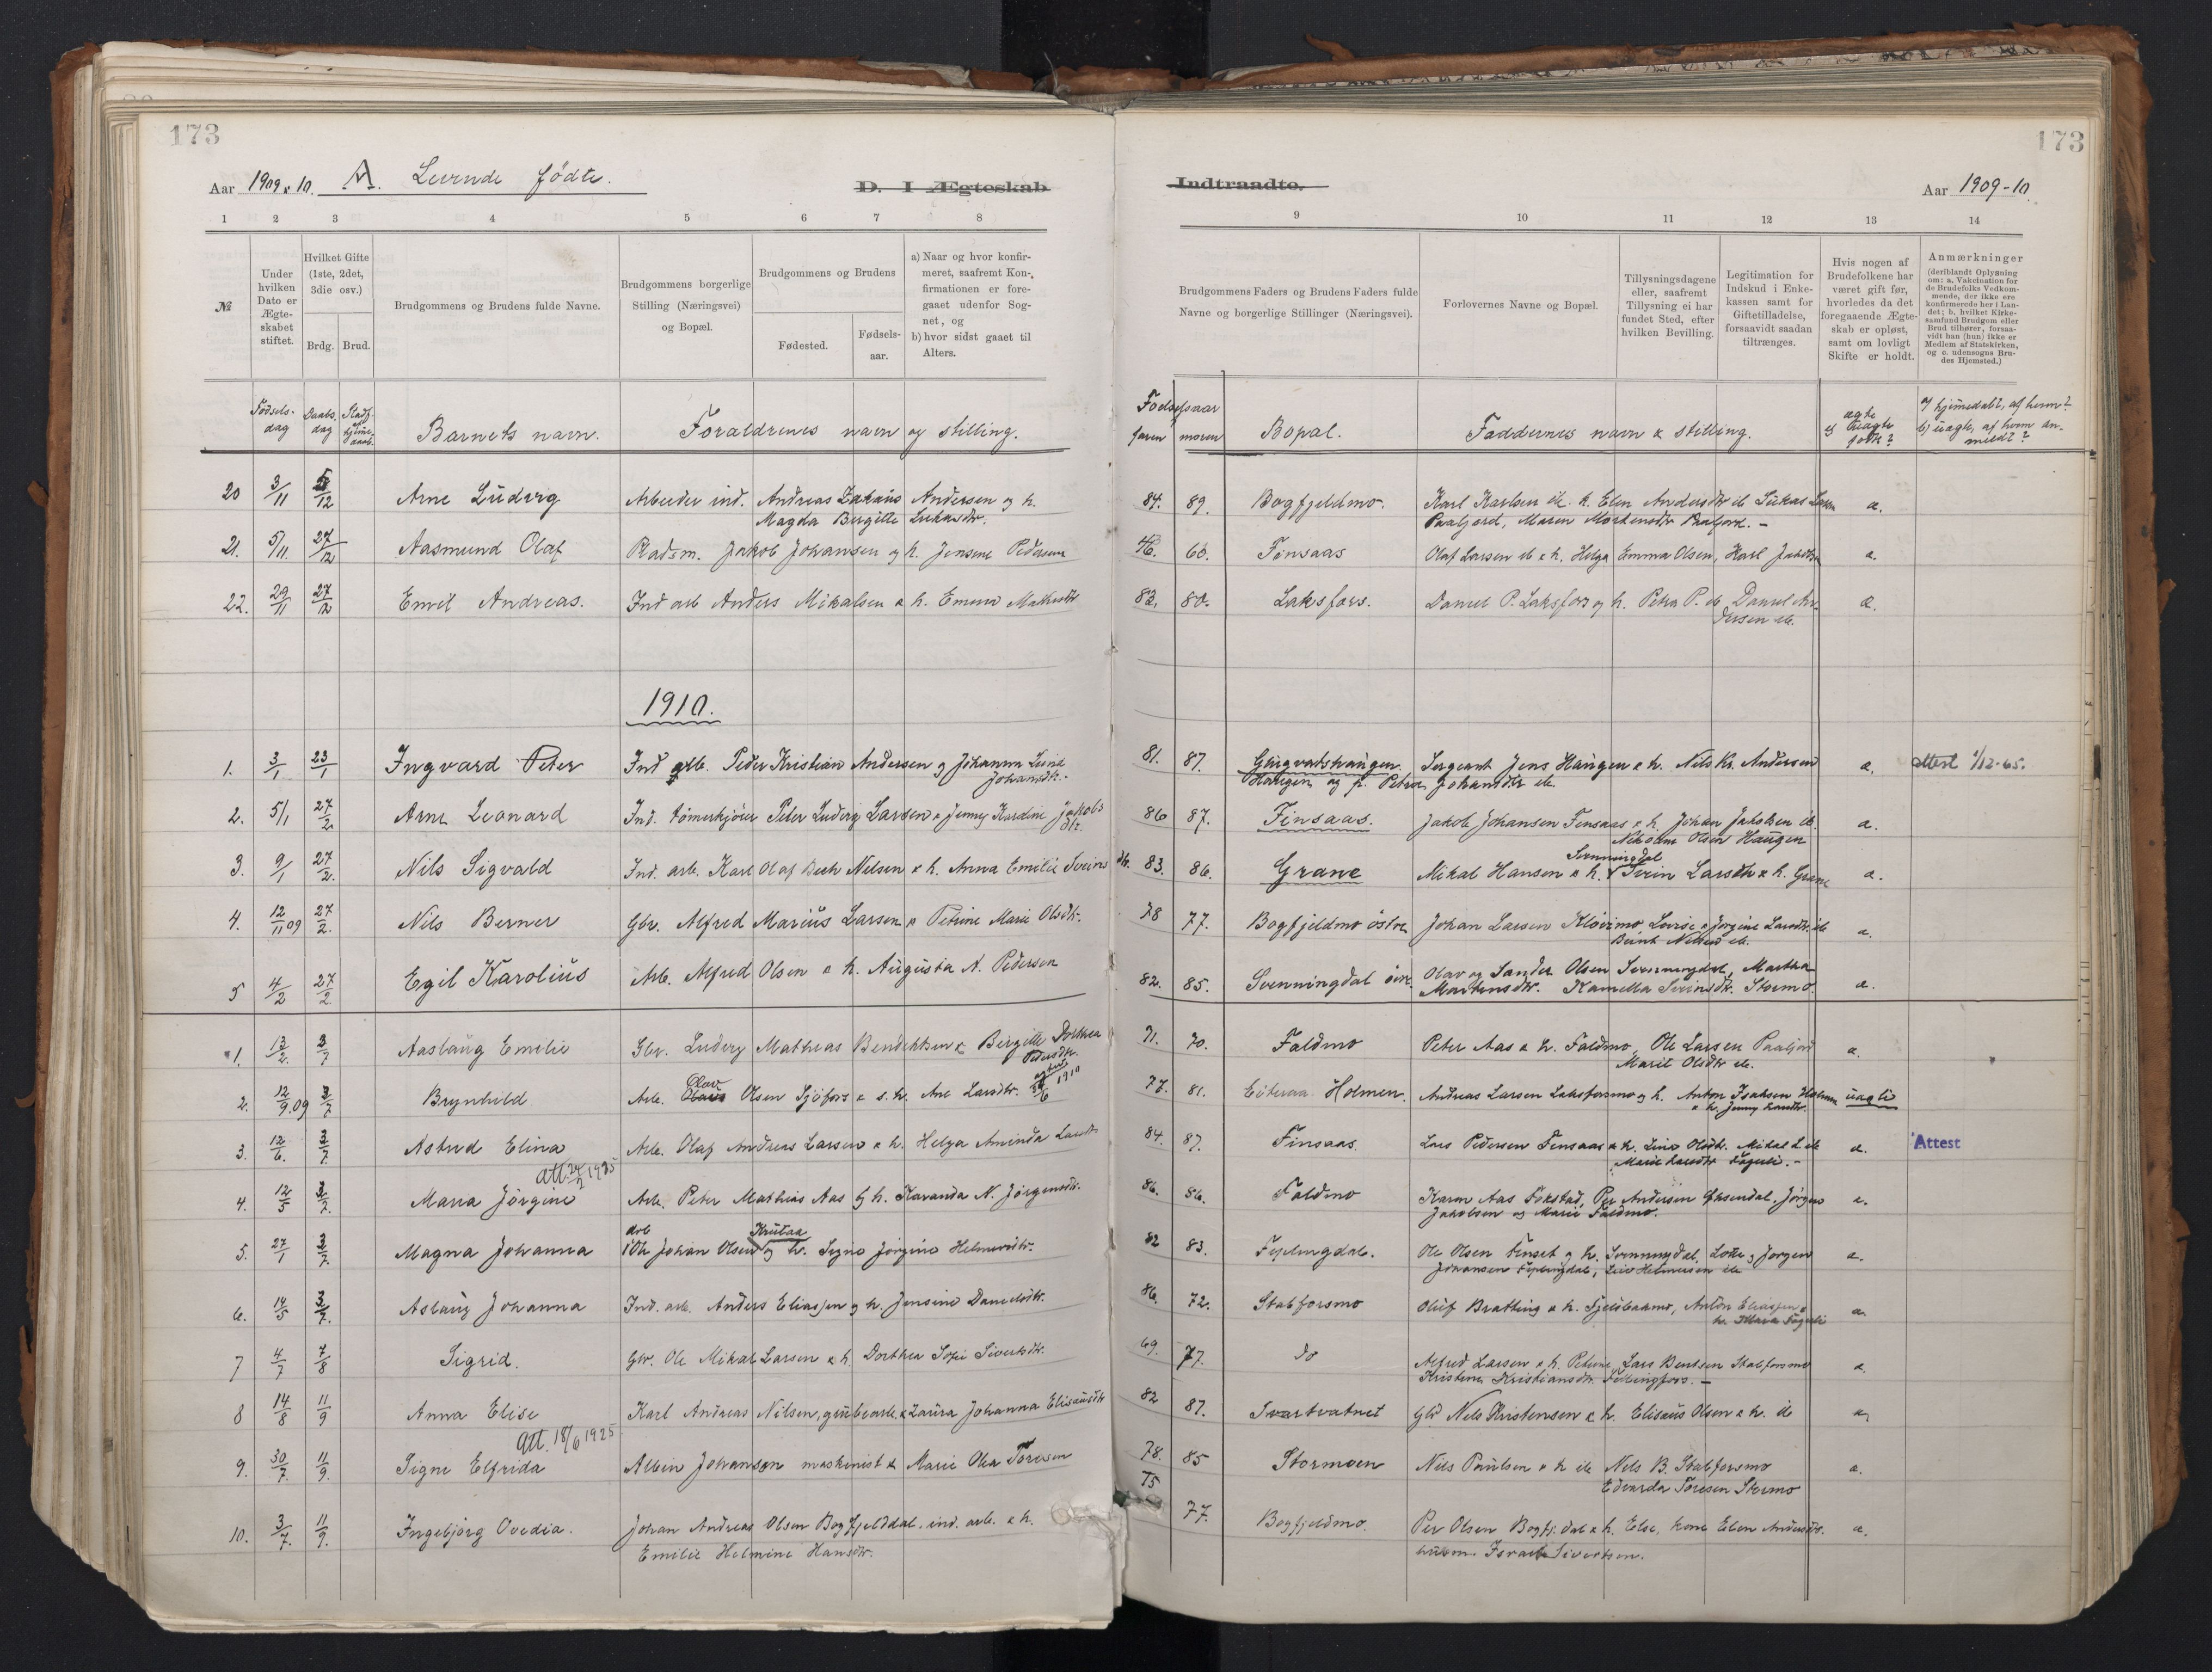 173
Aar 1909 & 10. A. Levende fødte. D. I Ægteskab
1 2 3 4 5 6 7 8
№
Under hvilken Dato er Ægteskabet stiftet.
Hvilket Gifte (1ste, 2det, 3die osv.)
Brdg. Brud.
Brudgommens og Brudens fulde Navne.
Brudgommens borgerlige Stilling (Næringsvei) og Bopæl.
Brudgommens og Brudens
Fødested.
Fødsels-aar.
a) Naar og hvor konfir-
meret, saafremt Kon-
firmationen er fore-
gaaet udenfor Sog-
net, og
b) hvor sidst gaaet til
Alters.
Fødsels-dag Daabs dag Barnets navn. Forældrenes navn og stilling.
20 3/11 5/12 Arne Ludvig Arbeider ind. Andreas Zakæus Andersen og h.
Magda Bergitte Lukasdtr.
21. 5/11 27/12 Aasmund Olaf Pladsm. Jakob Johansen og h. Jensine Pedersen
22. 29/11 27/12 Emil Andreas. Ind arb Anders Mikalsen & h. Emma
1910.
1. 3/1 23/1 Ingvard Peter Ind arb. Peder Kristian Andersen og Johanna Lina
Johansdtr.
2. 5/1 27/2 Arne Leonard Ind. tømerkjører Peter Ludvig Larsen & Jenny Kardine Jakobs
dtr.
3. 9/1 27/2. Nils Sigvald Ind. arb. Karl Olaf Bech Nilsen & h. Anna Emilie Sveins
4. 12/11 09 27/2. Nils Berner Gbr. Alfred Marius Larsen & Petrine Marie Olsdtr.
5 4/2 27/2. Egil Karolius Arb. Alfred Olsen & h. Augusta A. Pedersen
1. 13/2. 3/7 Aaslaug Emelie Gbr. Ludvig Mathias Bendiktsen & Bergitte Dorthea
Pedersdtr.
2. 12/9.09 3/7 Brynhild Arb. Olav Olsen Sjøfors & s. h. Ane Larsdtr. 1910
3. 12/6. 3/7. Astrid Elina Arb. Olaf Andreas Larsen & h. Helga Aminda
Att. 24/2 1925
4. 12/5 3/7. Maria Jørgine Arb. Peter Mathias Aas og h. Havanda N. Jørgensdtr.
arb Krutaa
5. 27/1 3/7. Magna Johanna Ole Johan Olsen og h. Signe Jørgine Helmersdtr.
6. 14/5 3/7. Aslaug Johanna Ind. arb. Anders Eliassen og h. Jensine Danielsdtr.
7 4/7 7/8 Sigrid. Gbr. Ole Mikal Larsen & h. Dorthea Sofie Sivertsdtr.
8 14/8 11/9 Anna Elise Karl Andreas Nilsen, grubearb. & Laura Johanna Elisæusdtr
Att. 18/6 1925
9. 30/7. 11/9. Signe Elfrida Albin Johanson maskinist & Marie Olea Toresen
10. 3/7. 11/9. Ingebjørg Ovedia. Johan Andreas Olsen Bogfjelddal, ind. arb. & h.
Emilie Helmine Hansdtr.
173
Indtraadte. Aar 1909-10.
9 10 11 12 13 14
Brudgommens Faders og Brudens Faders fulde Navne og borgerlige Stillinger (Næringsvei).
Forlovernes Navne og Bopæl.
Tillysningsdagene eller, saafremt Tillysning ei har fundet Sted, efter hvilken Bevilling.
Legitimation for Indskud i Enke-kassen samt for Giftetilladelse, forsaavidt saadan tiltrænges.
Hvis nogen af Brudefolkene har været gift før, hvorledes da det foregaaende Ægte-skab er opløst, samt om lovligt Skifte er holdt.
Anmærkninger
(deriblandt Oplysning om: a. Vakcination for de Brudefolks Vedkom-mende, der ikke ere konfirmerede her i Lan-det; b. hvilket Kirke-samfund Brudgom eller Brud tilhører, forsaa-vidt han (hun) ikke er Medlem af Statskirken, og c. udensogns Bru-des Hjemsted.)
Fødselsaar
faren moren Bopæl. Faddernes navn & stilling. ægte el uægte født? a) hjemedøbt, af hvem?
b) uægte, af hvem an-
meldt?
84. 89. Bogfjeldmo. Karl Karlsen ib. h. Elen Andersdtr ib Lukas Larsen a.
Paafjord, Maren Mortensdtr Paafjord. –
46. 60. Finsaas Olaf Larsen ib & h. Helga Emma Olsen, Karl Jakobsen a.
82. 80. Laksfors. Daniel P. Laksfors og h. Petra P. ib Daniel An-
dersen ib. a.
81. 87. Sergeant Jens Haugen & h. Nils Kr. Andersen a. attest 1/12-65.
Haugen og fr. Petra Johansdtr ib.
86 87. Finsaas. Jakob Johansen Finsaas & h. Johan Jakobsen ib. a.
Olsen Haugen
Svenningdal
83. 86. Grane Mikal Hansen & h. Svein Larsen & h. Grane a.
78 77. Bogfjeldmo østre Johan Larsen Kløvimo Lovise & Jørgine Larsdtr. ib a.
Bernt Nilsen ib.
82. 85. Svenningdal øvre. Olav og Sander Olsen Svenningdal, Martha
Martinsdtr. Kamilla Sveinsdtr. Stormo. a.
71. 70. Faldmo Peter Aas & h. Faldmo, Ole Larsen Paafjord a.
Marit Olsdtr ib.
77. 81. Eiteraa Holmen. Andreas Larsen Laksforsmo og h. Anton Isaksen Holmen uægte
& h. Jenny Larsdtr.
84. 87. Finsaas. Lars Pedersen Finsaas & h. Lina Olsdtr. Mikal L. ib a. Attest
Marie Larsdtr Fagerli. –
86. 86. Faldmo Karen Aas Fokstad, Per Andersen Jørgen a.
Jakobsen og Marie Faldmo.
82 83. Fiplingdal. Ole Olsen Finset og h. Svenningdal Lotte og Jørgen a.
Johansen Fiplingdal, Helmersen ib
86. 72. Stabforsmo Oluf Brattling & h. Anton Eliassen & a.
h. Maria Fagerli
69. 77. do Alfred Larsen & h. Petrine, Lars Bentsen Stabforsmo a.
Kristine Kristiansdtr. –
82 87. Svartvatnet Gbr Nils Kristensen & h. Elisæus Olsen & h. ib a,
78. 85 Stormoen Nils Paulsen & h ib Nils B. Stabforsmo a.
Edvarda Toresen Stormo
75 77. Bogfjeldmo. Per Olsen Bogfj.dal & h. Else, kone Elen Andersdtr. a.
husm. Israel Sivertsen.